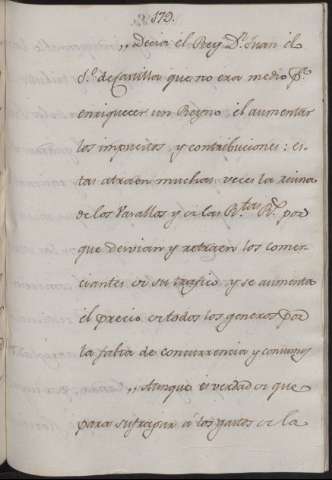 179.
,, Decia el Rey D.n Juan el
S.do de Castilla que no era medio p.a
enriquecer un Reyno el aumentar
los impuestos y contribuciones: es-
tas atraen muchas veces la ruina
de los Vasallos y de las R.tas R.s por
que desvian y retraen los comer
ciantes de su trafico y se aumenta
el precio de todos los generos por
la falta de concurrencia y consumos
,, Aunque es verdad de que
para sufragar á los gastos de la